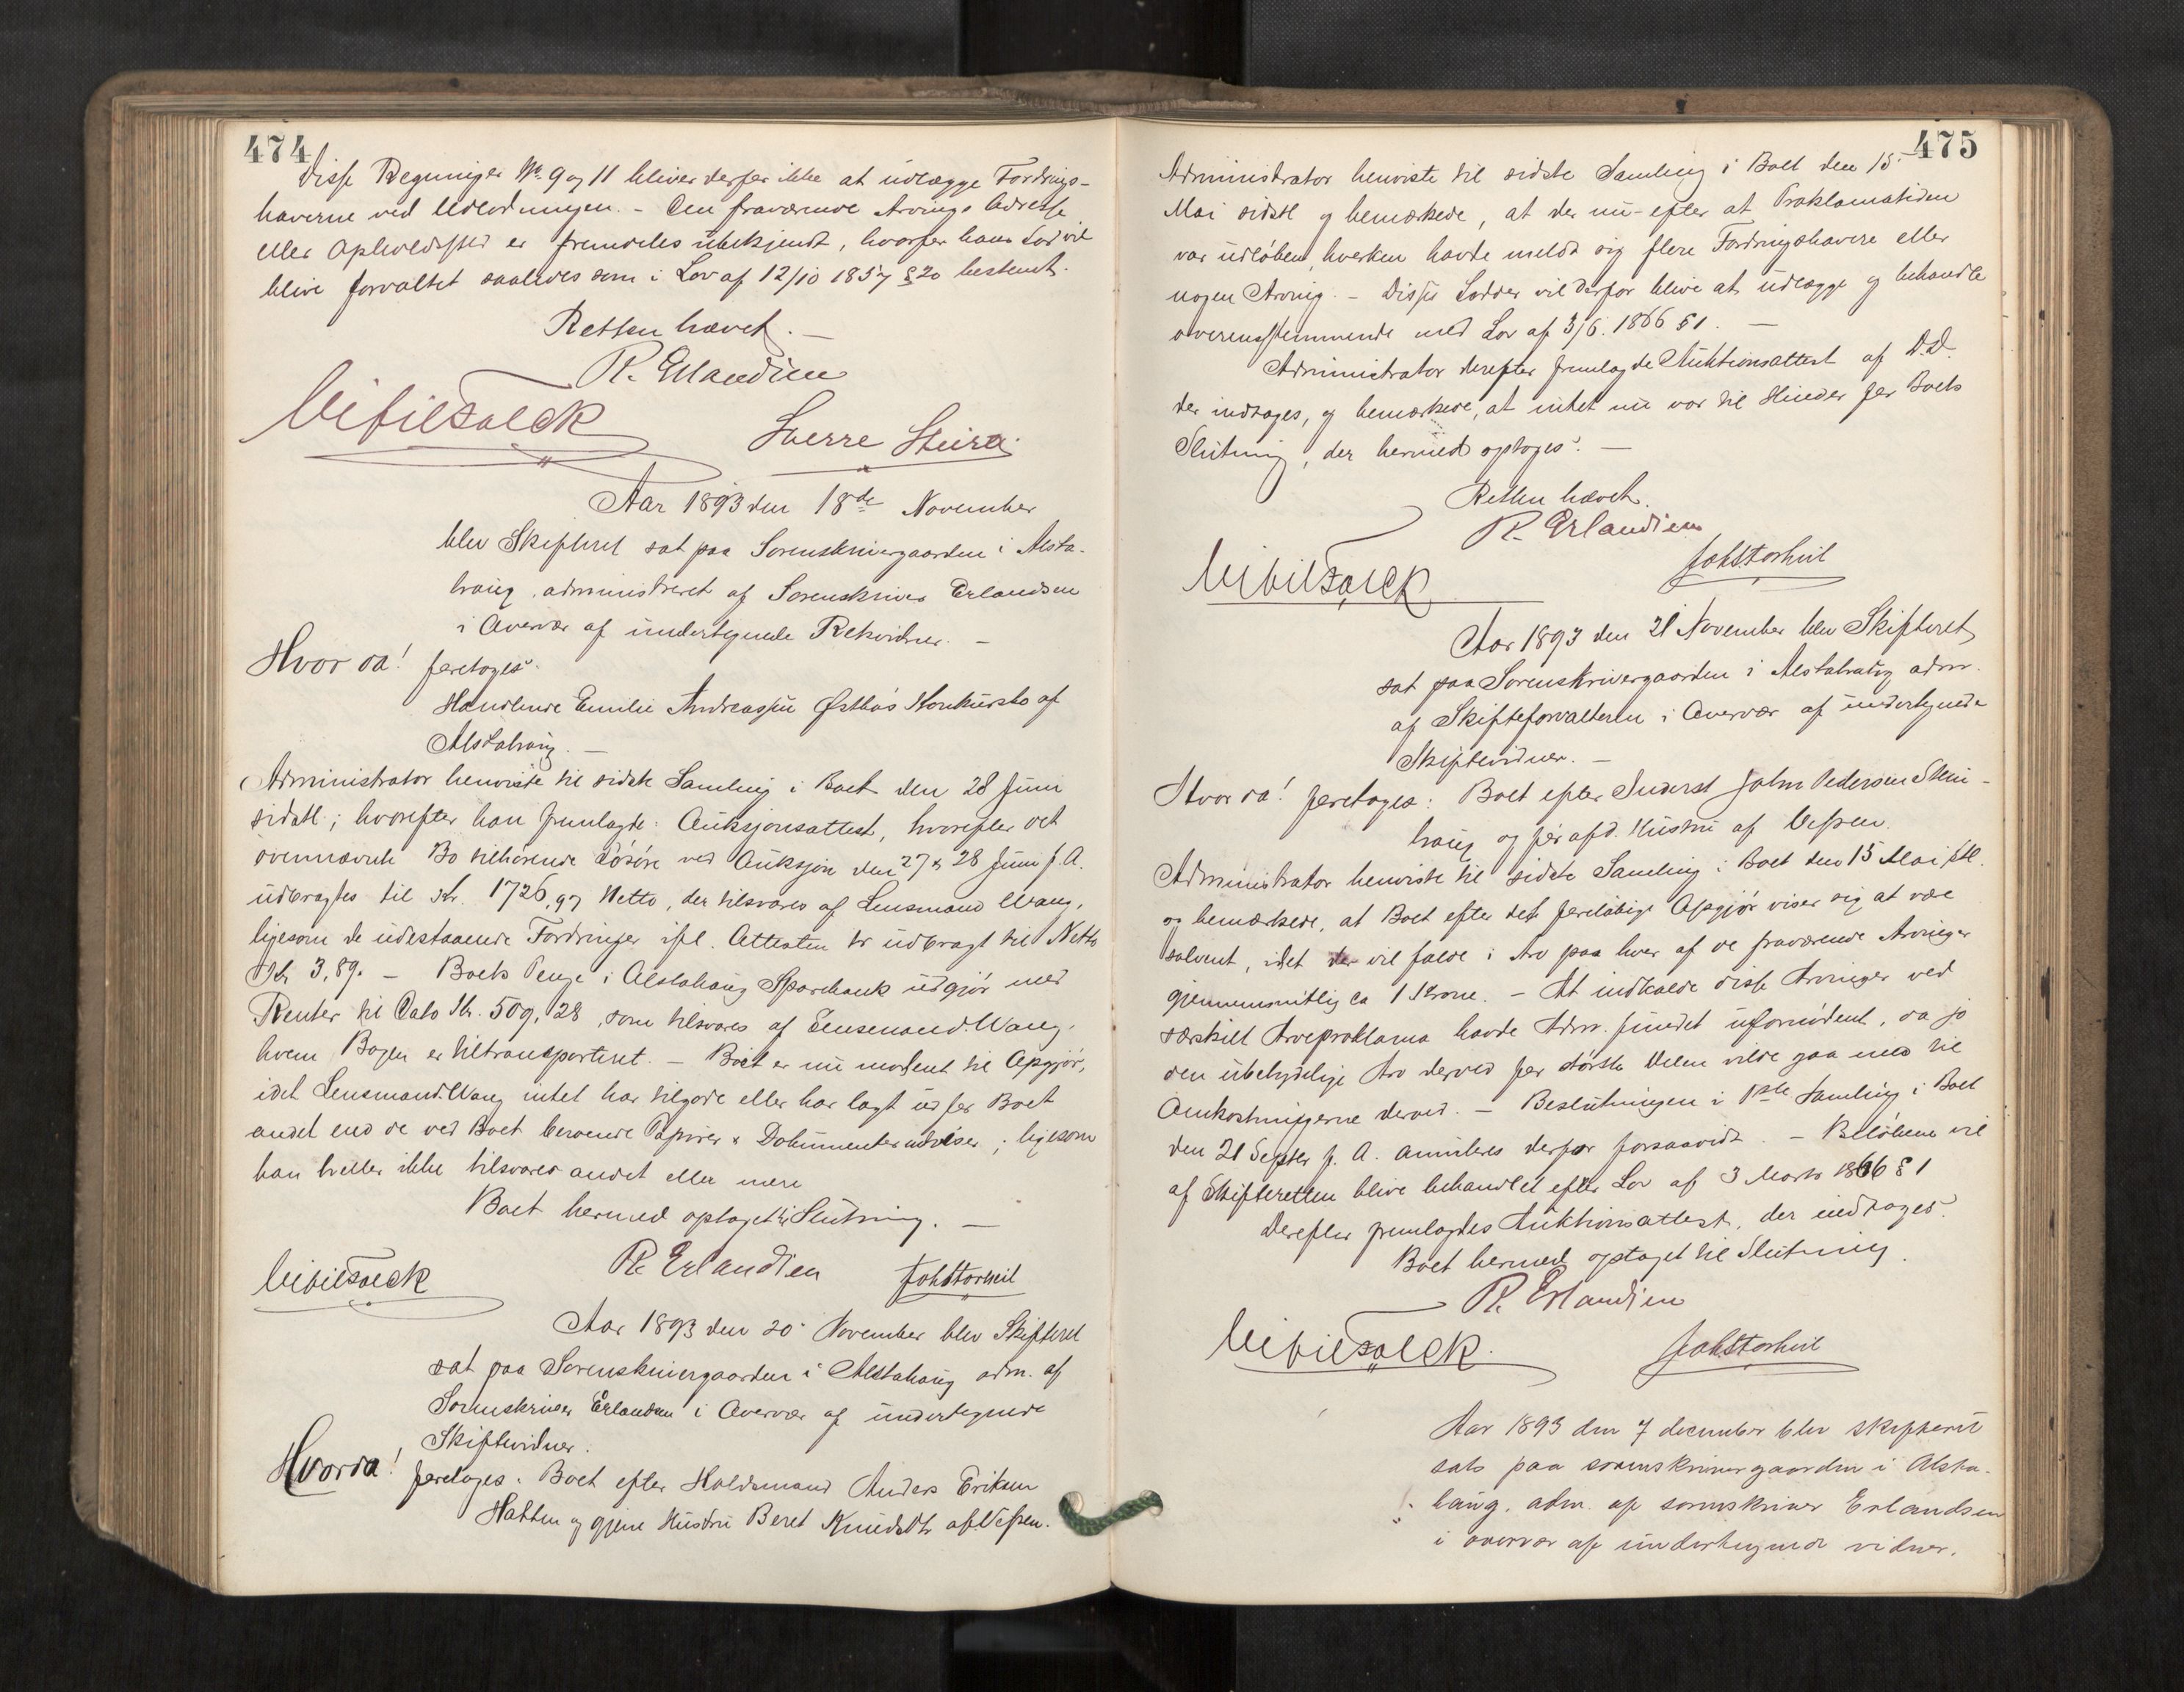 474
Disse Regninger No. 9 og 11 bliver derfor ikke at udlægge Fordrings-
haverne ved Udlodningen. - Den fraværende Arvings Adresse
eller Opholdssted er fremdeles ubekjendt, hvorfor hans Lod vil
blive forvaltet saaledes som i Lov af 12/10 1857 § 20 bestemt.
Retten hævet. -
R. Erlandsen
Sverre Steiro
Aar 1893 den 18de November
blev Skifteret sat paa Sorenskrivergaarden i Alsta-
haug, administreret af Sorenskriver Erlandsen
i Overvær af undertegnede Retsvidner. -
Hvor da! foretoges:
Handlende Emilie Andreassen Østbøs Konkursbo af
Alstahaug. -
Administrator henviste til sidste Samling i Boet den 28 Juni
sidstl; hvorefter han fremlagde Auksjonsattest, hvorefter det
ovennævnte Bo tilhørende Løsøre ved Auksjon den 27 & 28 Juni f. A.
udbragtes til Kr. 1726,97 Netto, der tilsvares af Lensmand Wang,
ligesom de udestaaende Fordringer ifl. Attesten er udbragt til Netto
Kr 3,89. - Boets Penge i Alstahaug Sparebank udgjør med
Renter til Dato Kr. 509,28, som tilsvares af Lensmand Wang,
hvem Bogen er tiltransporteret. - Boet er nu modent til Opgjør,
idet Lensmand Wang intet har tilgode eller har lagt ud for Boet
andet end de ved Boet beroende Papirer & Dokumenter udviser; ligesom
han heller ikke tilsvarer andet eller mere
Boet hermed optoget til Slutning. -
R. Erlandsen
Joh Storhvil
Aar 1893 den 20 November blev Skifteret
sat paa Sorenskrivergaarden i Alstahaug adm. af
Sorenskriver Erlandsen i Overvær af undertegnede
Skiftevidner.
Hvor da! foretoges: Boet efter Holdsmand Anders Eriksen
Hatten og gjenl Hustru Beret Knudsdtr af Vefsen.
475
Administrator henviste til sidste Samling i Boet den 15.
Mai sidstl og bemærkede, at der nu - efter at Proklamatiden
var udløben, hverken havde meldt sig flere Fordringshavere eller
nogen Arving. - Disses Lodder vil derfor blive at udlægge og behandle
overensstemmende med Lov af 3/6. 1866 § 1. -
Administrator derefter fremlagde Auktionsattest af D.D.
der indtoges, og bemærkede, at intet nu var til Hinder for Boets
Slutning, der hermed optoges. -
Retten hævet.
R. Erlandsen
Joh Storhvil
Aar 1893 den 21 November blev Skifteret
sat paa Sorenskrivergaarden i Alstahaug adm.
af Skifteforvalteren i Overvær af undertegnede
Skiftevidner. -
Hvor da! foretoges: Boet efter Inderst John Pedersen Stein-
haug og før afd. Hustru af Vefsen.
Administrator henviste til sidste Samling i Boet den 15 Mai sdstl.
og bemærkede, at Boet efter det foreløbige Opgjør viser sig at være
solvent, idet der vil falde i Arv paa hver af de fraværende Arvinger
gjennemsnitlig ca 1 Krone. - At indkalde disse Arvinger ved
særskilt Arveproklama havde Adm. fundet ufornødent, da jo
den ubetydelige Arv derved for største Delen vilde gaa med til
Omkostningerne derved. - Beslutningen i 1ste Samling i Boet
den 21 Septbr f. A. annuleres derfor forsaavidt. - Beløbene vil
af Skifteretten blive behandlet efter Lov af 3 Marts 1866 § 1
Derefter fremlagdes Auktionsattest, der indtoges.
Boet hermed optoget til Slutning.
R. Erlandsen
Joh Storhvil
Aar 1893 den 7 december blev skifteret
sats paa sorenskrivergaarden i Alsta-
haug, adm. af sorenskriver Erlandsen
i overvær af undertegnede vidner.